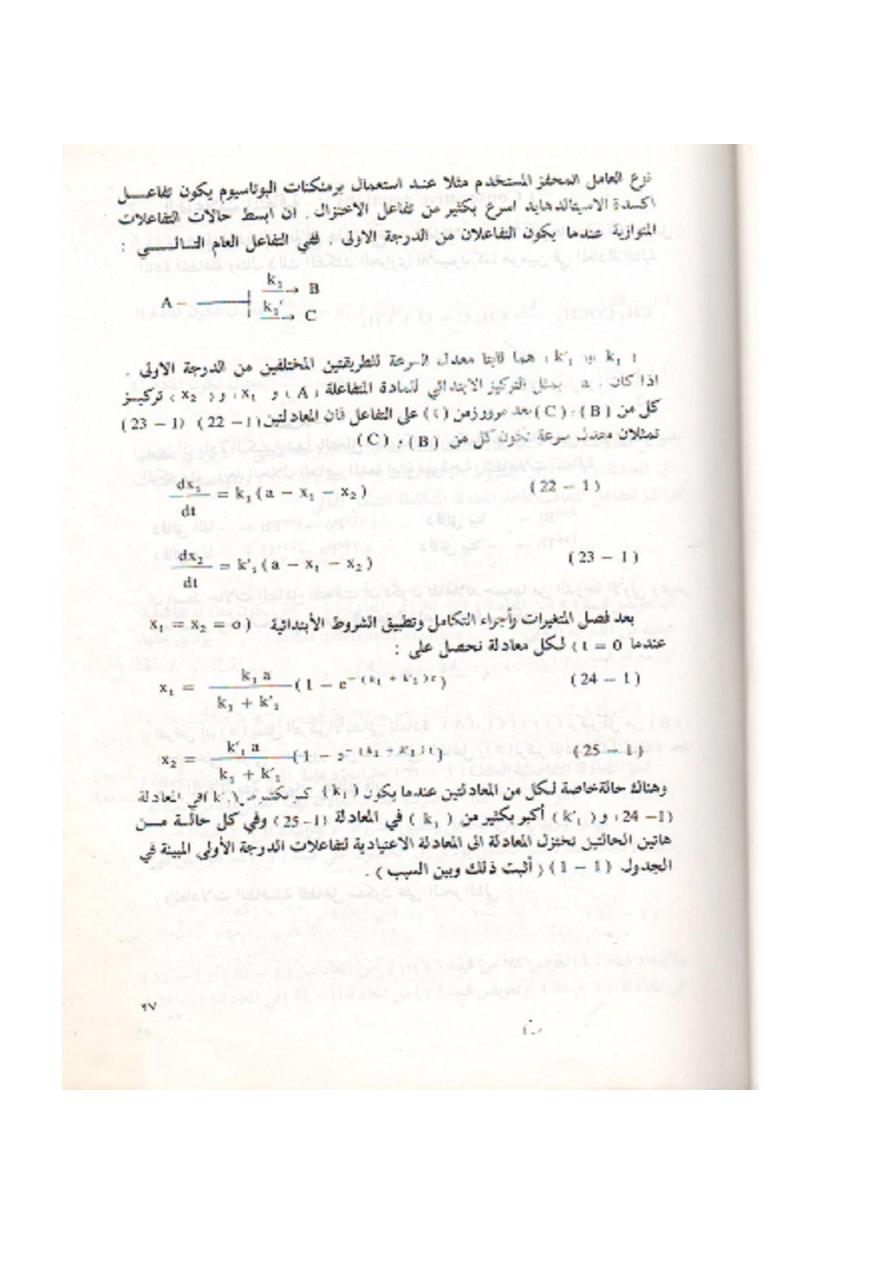 نوع العامل المحفز المستخدم مثلا عند استعمال برمنكنات البوتاسيوم يكون تفاعـــل
اكسدة الاسيتالدهايد اسرع بكثير من تفاعل الاختزال . ان ابسط حالات التفاعلات
المتوازية عندما يكون التفاعلان من الدرجة الاولى . ففي التفاعل العام التـــالـــــي :
k₁
A → B
k₁′
→ C
( k₁ ) و ( k′₁ ) هما ثابتا معدل السرعة للطريقتين المختلفين من الدرجة الاولى .
اذا كان ( a ) يمثل التركيز الابتدائي للمادة المتفاعلة ( A ) و ( x₁ ) و ( x₂ ) تركيــز
كل من ( B ) ، ( C ) بعد مرور زمن ( t ) على التفاعل فان المعادلتين (1 – 22) (1 – 23)
تمثلان معدل سرعة تكون كل من ( B ) ، ( C )
dx₁/dt = k₁ ( a − x₁ − x₂ ) ( 22 − 1 )
dx₂/dt = k′₁ ( a − x₁ − x₂ ) ( 23 − 1 )
بعد فصل المتغيرات وأجراء التكامل وتطبيق الشروط الأبتدائية ( x₁ = x₂ = o
عندما t = 0 ) لكل معادلة نحصل على :
x₁ = k₁ a / k₁ + k′₁ ( 1 − e^−(k₁ + k′₁)t ) ( 24 − 1 )
x₂ = k′₁ a / k₁ + k′₁ ( 1 − e^−(k₁ + k′₁)t ) ( 25 − 1 )
وهناك حالة خاصة لكل من المعادلتين عندما يكون ( k₁ ) كبر بكثير من ( k′₁ ) في المعادلة
(1– 24) و ( k′₁ ) أكبر بكثير من ( k₁ ) في المعادلة (1–25) وفي كل حالــة مـــن
هاتين الحالتين تختزل المعادلة الى المعادلة الاعتيادية لتفاعلات الدرجة الأولى المبينة في
الجدول (1 – 1) ( أثبت ذلك وبين السبب ) .
٢٧